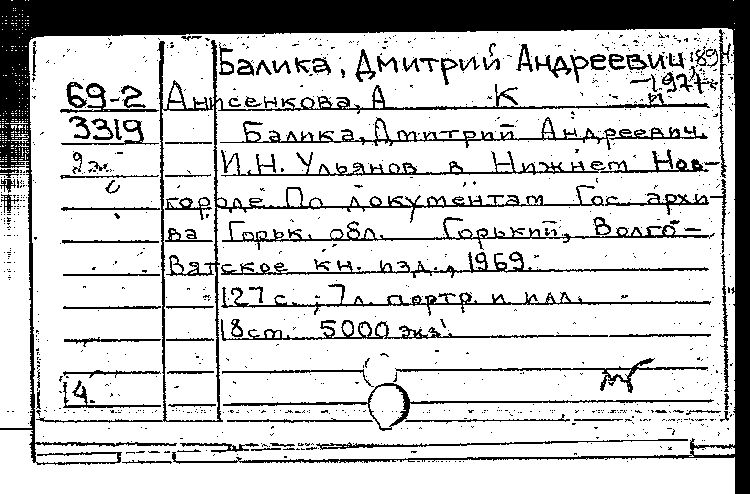 Балика, Дмитрий Андреевич 1894
-1971
69-2 Анисенкова, А К
3319 Балика, Дмитрий Андреевич.
2 эк И.Н. Ульянов в Нижнем Нов-
городе По документам Гос. архи-
ва Горьк. обл. Горький, Волго-
Вятское кн. изд., 1969.
127 с.; 7 л. портр. и илл.
18 cm. 5000 экз.
14.